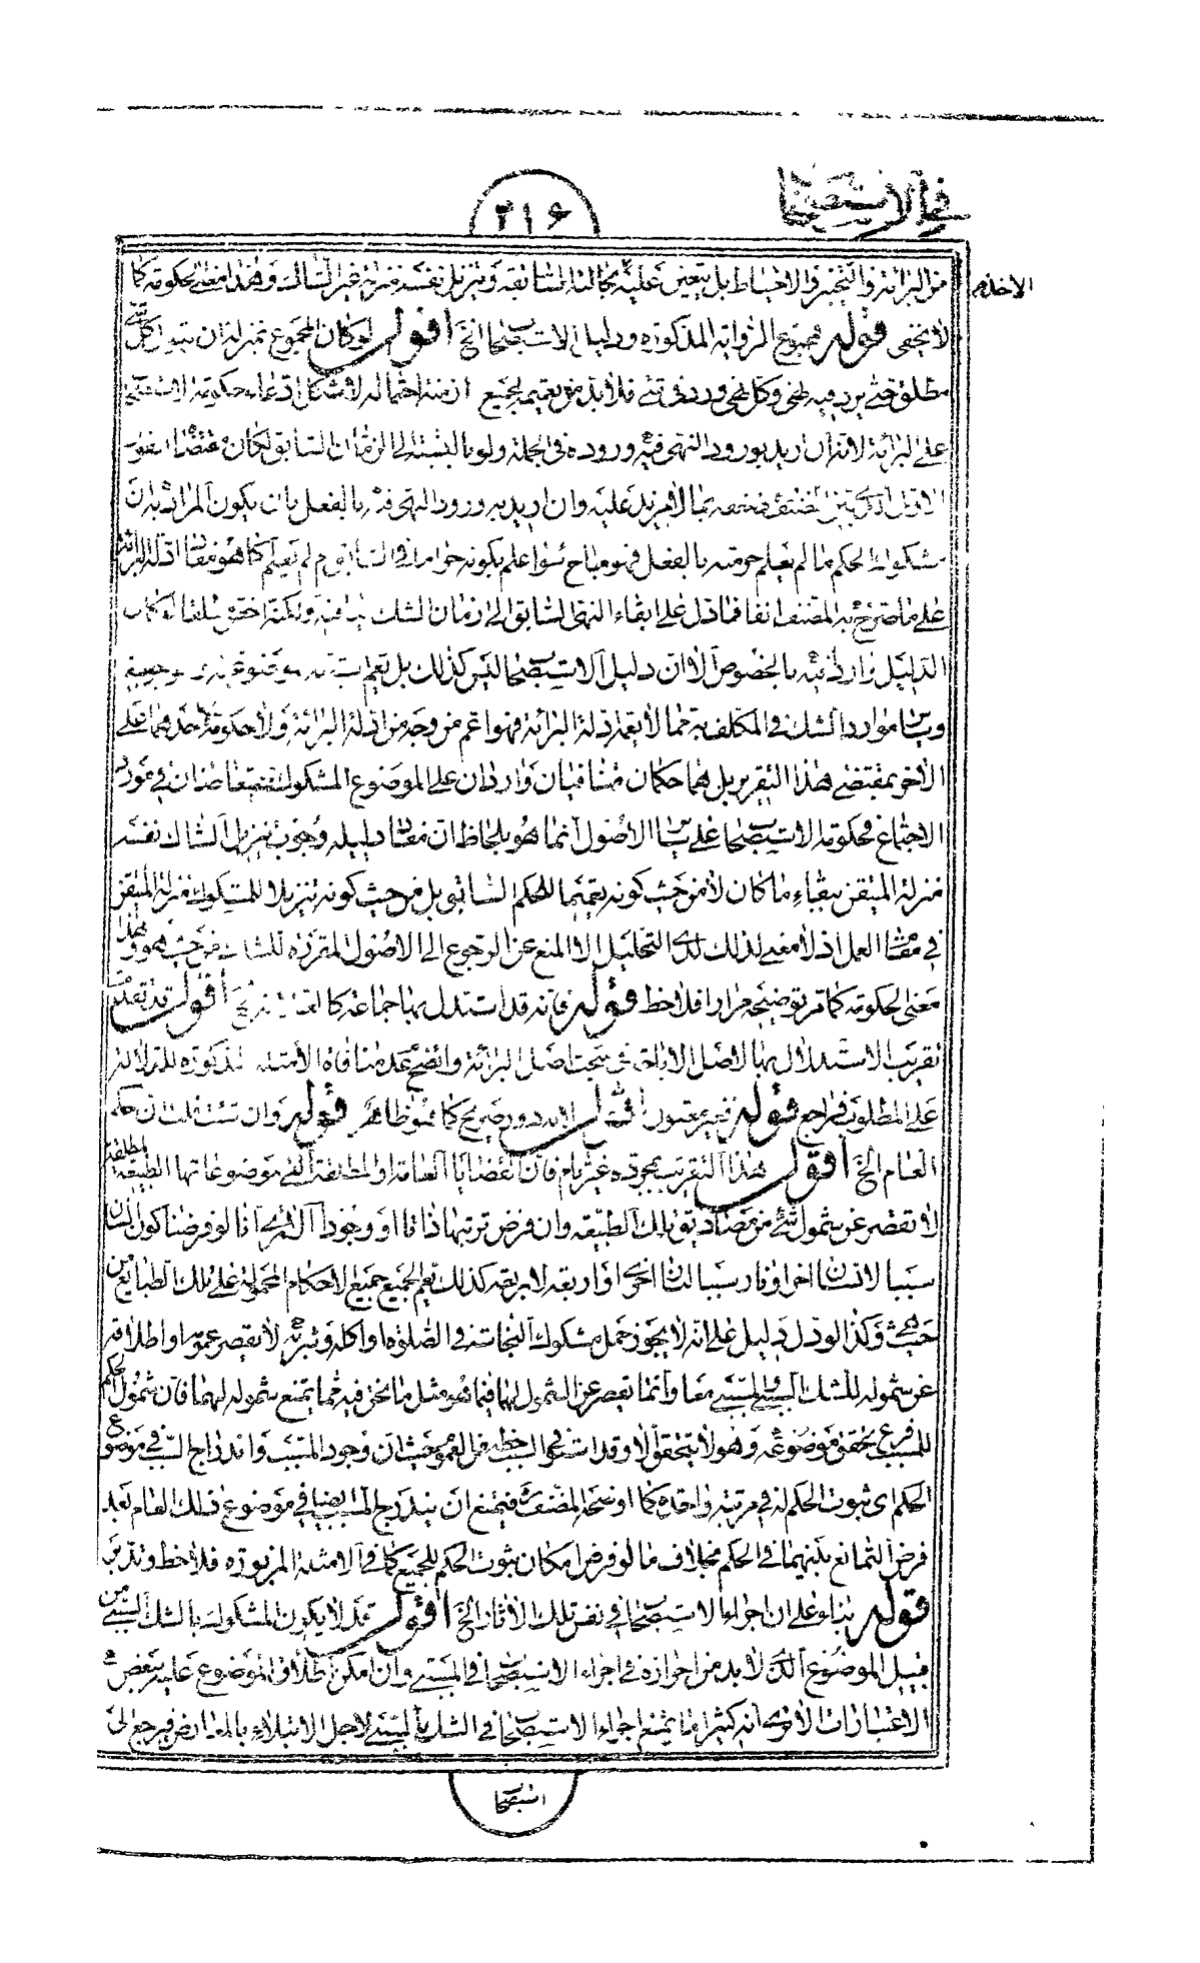 في الاستصحاب
٢١۶
من البرائة والتخيير والاحتياط بل يتعين عليه بحالته السابقة وتنزيل نفسه منزلة غير الشاك وهذا معنى الحكومة كما
لا يخفى قوله فمجموع الرواية المذكورة ودليل الاستصحاب الخ أقول لو كان المجموع بمنزلة ان يقول كل شئ
مطلق حتى يرد فيه نهي وكل نهي ورد في شئ فلا بد من تعميمه لجميع ازمنة احتماله لاشكل ادعاء حكومة الاستصحاب
على البرائة لانه ان اريد بورود النهي فيه وروده في الجملة ولو بالنسبة الى الزمان السابق لكان
المصنف بما لا مزيد عليه وان اريد به ورود النهي فيه بالفعل بان يكون المراد به ان
مشكوك الحكم ما لم يعلم حرمته بالفعل فهو مباح سواء علم بكونه حراما في السابق ام لم يعلم كما هو مفاد ادلة البرائة
على ما صرح به المصنف انفا فما دل على ابقاء النهي السابق الى زمان الشك
الدليل واردا فيه بالخصوص الا ان دليل الاستصحاب ليس كذلك بل يعم
وسائر موارد الشك في المكلف به مما لا يعمه ادلة البرائة فهو اعم من وجه من ادلة البرائة ولا حكومة لاحدهما على
الاخر بمقتضى هذا التقرير بل هما حكمان متنافيان واردان على الموضوع المشكوك فيتعارضان في مورد
الاجتماع فحكومة الاستصحاب على سائر الاصول انما هو بلحاظ ان مفاد دليله وجوب تنزيل الشاك نفسه
منزلة المتيقن ببقاء ما كان لا من حيث كونه تعميما للحكم السابق بل من حيث كونه تنزيلا للمشكوك منزلة المتيقن
في مقام العمل اذ لا معنى لذلك لدى التحليل الا المنع عن الرجوع الى الاصول المقررة للشاك من حيث هو وهذا
معنى الحكومة كما مر توضيحه مرارا فلاحظ قوله فانه قد استدل بها جماعة أقول قد تقدم
تقريب الاستدلال بها لاصل الاباحة في مبحث اصل البرائة واتضح عدم منافاة الامثلة المذكورة للدلالة
على المطلوب فراجع قوله غير معقول أقول لانه دور صريح كما هو ظاهر قوله وان شئت قلت ان حكم
العام الخ أقول هذا التقريب بمجرده غير تام فان القضايا العامة او المطلقة التي موضوعاتها الطبيعة المطلقة
لا تقصر عن شمول شئ من مصاديق تلك الطبيعة وان فرض ترتبها ذاتا او وجودا الا ترى انا لو فرضنا كون انسان
سببا لانسان اخر او نار سببا لنار اخرى او اربعة لاربعة كذلك تعم الجميع جميع الاحكام المحمولة على تلك الطبائع من
حيث هي وكذا لو دل دليل على انه لا يجوز حمل مشكوك النجاسة في الصلوة او اكله وشربه لا يقصر عمومه او اطلاقه
عن شموله للشك السببي والمسببي معا وانما يقصر عن الشمول لهما فيما هو مثل ما نحن فيه مما يمتنع شموله لهما فان شمول الحكم
للمسبب فرع تحقق موضوعه وهو لا يتحقق الا وقد اندرج السبب من العموم حيث ان وجود المسبب واندراج السبب في موضوع
الحكم اي ثبوت الحكم له في مرتبة واحدة كما اوضحه المصنف فيمتنع ان يندرج المسبب ايضا في موضوع ذلك العام بعد
فرض التمانع بينهما في الحكم بخلاف ما لو فرض امكان ثبوت الحكم للجميع كما في الامثلة المزبورة فلاحظ وتدبر
قوله بناء على ان اجراء الاستصحاب في نفس تلك الاثار الخ أقول قد لا يكون المشكوك بالشك السببي من
قبيل الموضوع الذي لا بد من احرازه في اجراء الاستصحاب في المسببي وان امكن اطلاق الموضوع عليه ببعض
الاعتبارات الا ترى انه كثيرا ما يمتنع اجراء الاستصحاب في الشك السببي لاجل الابتلاء بالمعارض فيرجع الى
استصحاب